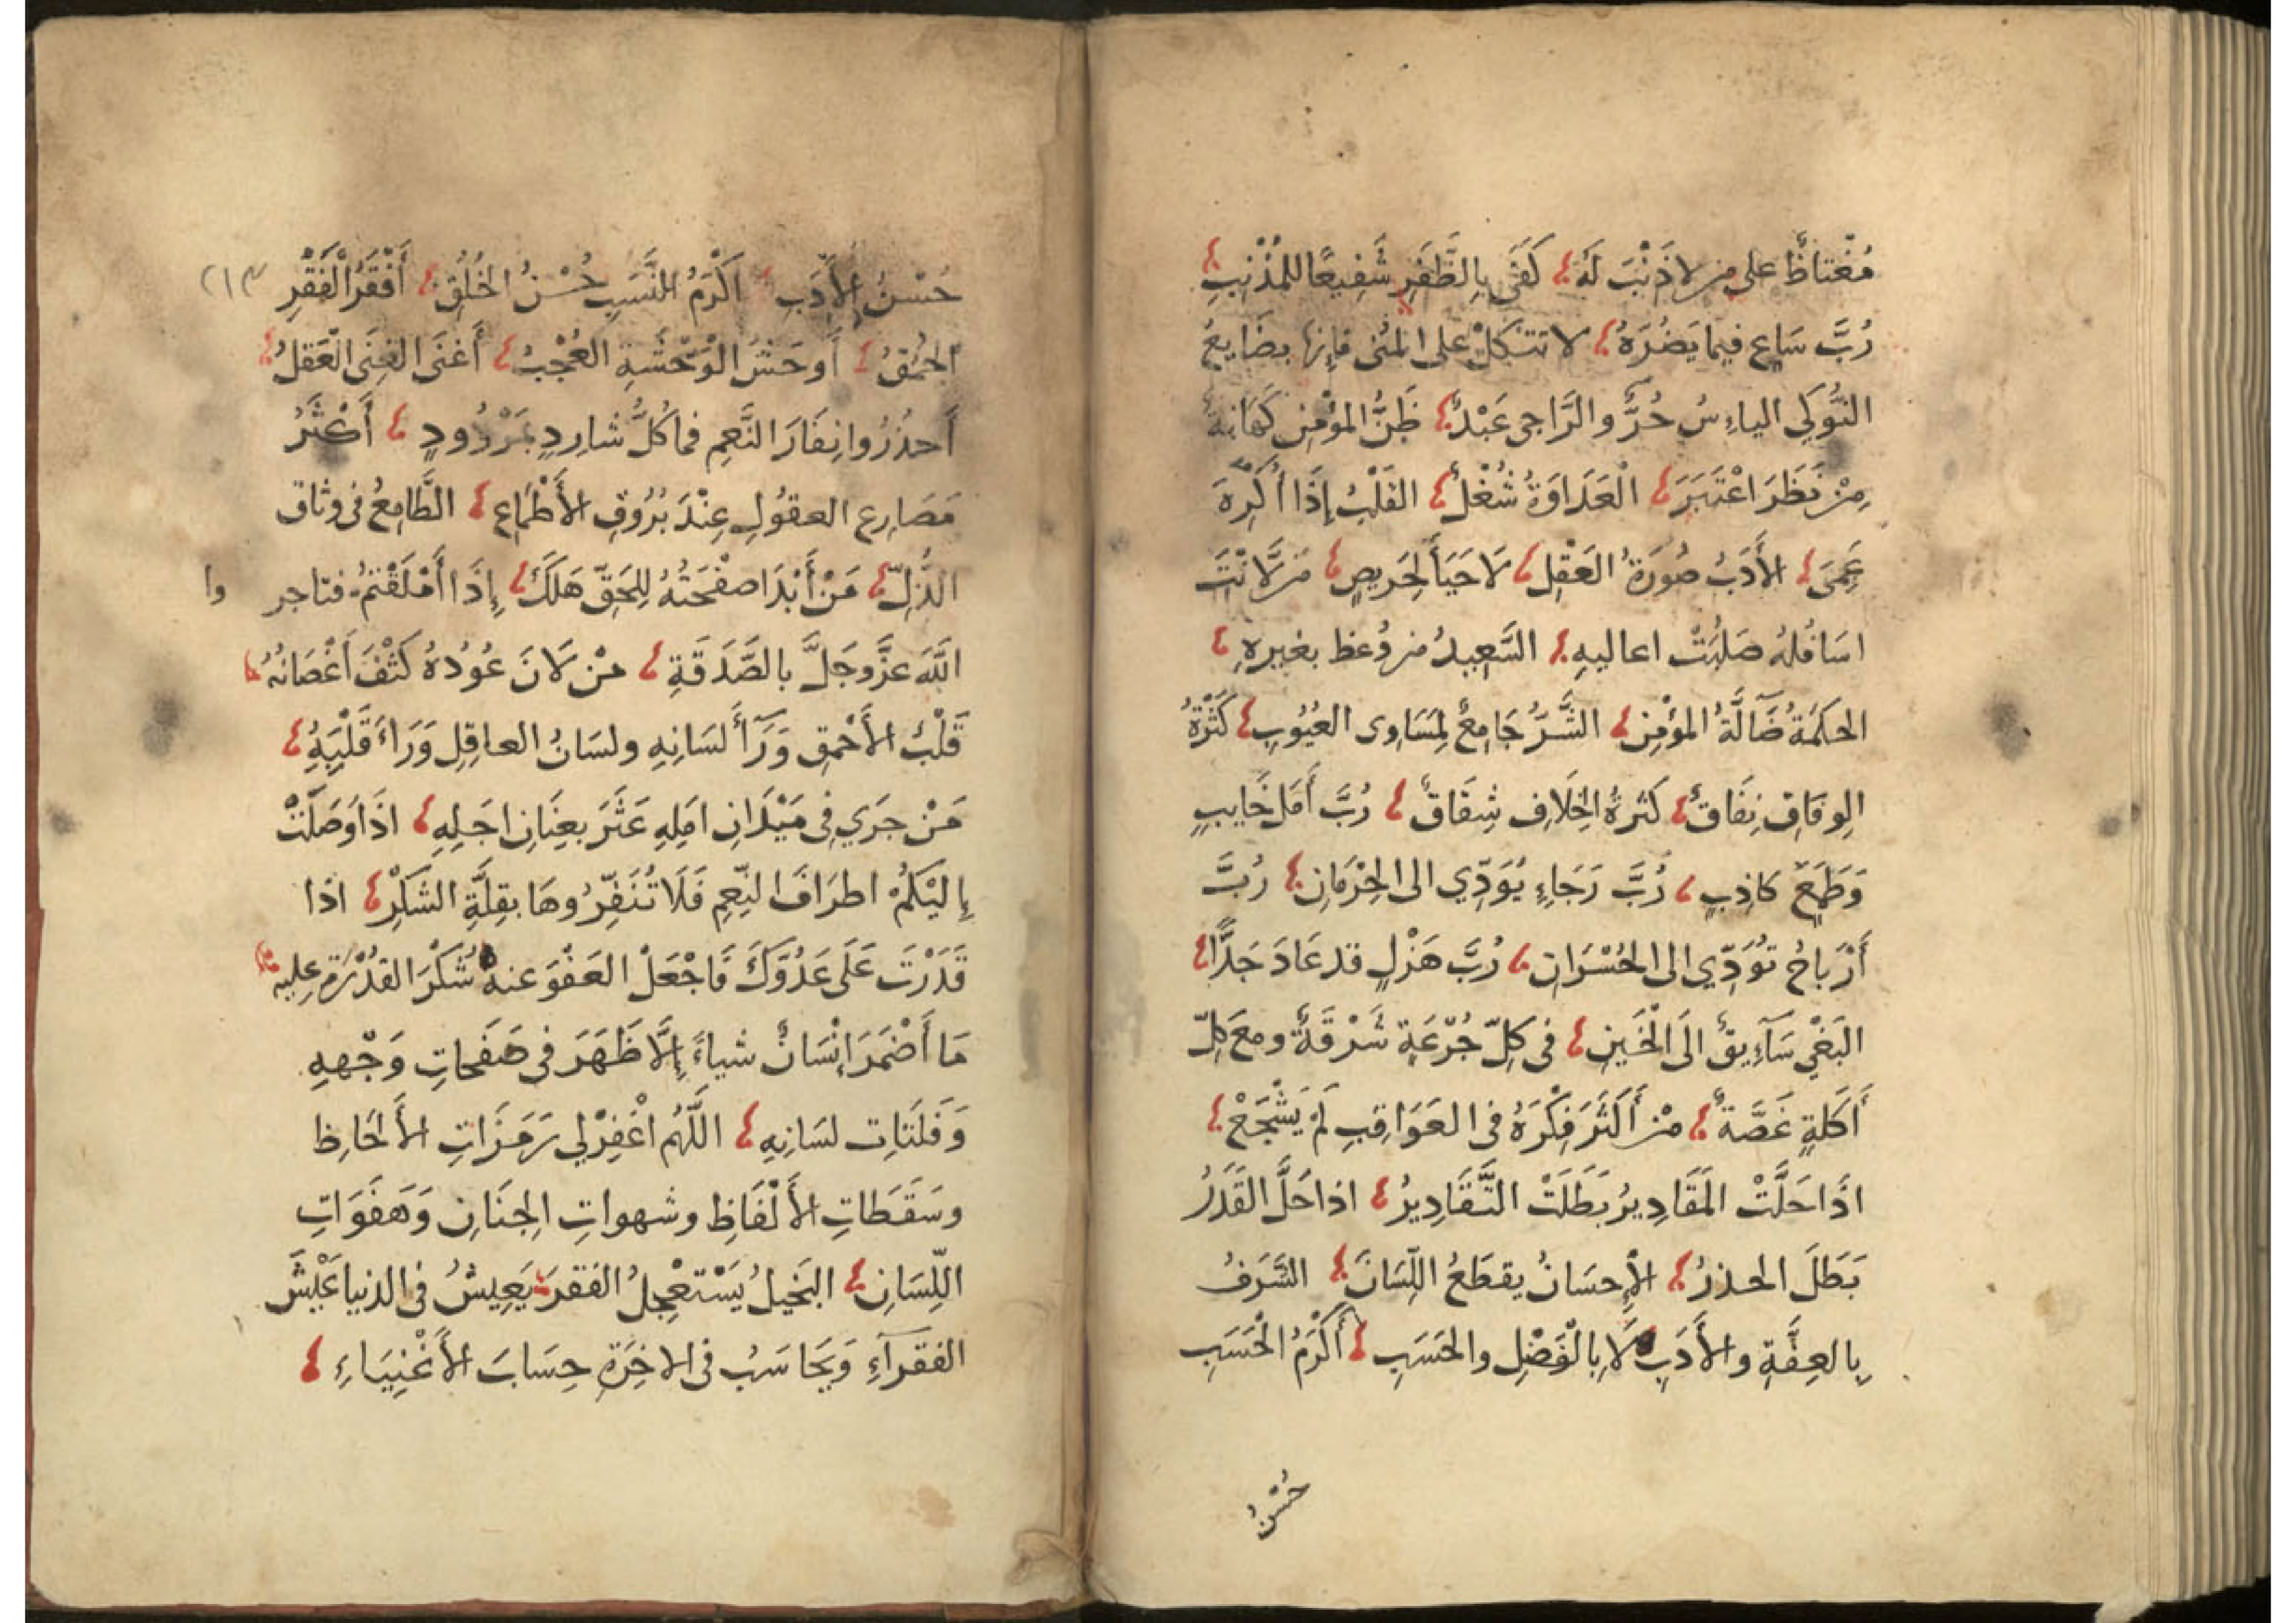 مُغْتاظٌ على من لا ذَنْبَ لَهُ كَفَى بِالظَّفَرِ شَفِيعًا للمُذْنِبِ
رُبَّ سَاعٍ فيما يَضُرّهُ لا تتكلْ على المُنى فإنها بضَايعُ
النَّوكَي الياءِسُ حُرٌّ والرَّاجى عَبْدٌ ظَنُّ المؤْمِنِ كَهَانةٌ
مِنْ نَظَرَ اعْتَبَرَ الْعَدَاوَةُ شُغْلٌ القَلْبُ إِذَا أُكْرِهَ
عَمِىَ الأَدَبُ صُورَةُ العَقْلِ لَا حَيَأَ لِحَرِيصٍ مَن لَانَتَ
اسَافُلهُ صَلُبَتْ اعاليهِ السَّعِيدُ من وُعظ بغيرهِ
الحكمَةُ ضَآلَّةُ المؤْمِنِ الشَّرُّ جَامِعٌ لِمَسَاوى العُيُوبِ كَثْرَةُ
الوِفَاقِ نِفَاقٌ كَثرةُ الخِلَافِ شِقَاقٌ رُبَّ أَمَلٍ خَايبٍ
وَطَمَعٌ كاذِبٍ رُبَّ رَجَاءٍ يُوَدِّي الى الحِرْمَانِ رُبَّ
أَرْبَاحٍ تُوَدِّي الى الخُسْرَانِ رُبَّ هَزْلٍ قد عَادَ جَدًّا
البَغْي سَآءِيقٌ الَى الْحَينِ فى كلِّ جُرْعَةٍ شَرْقَةٌ ومعَ كلِّ
أَكَلةٍ غَصَّةٌ مَنْ أَكَثَرَ فِكْرَهُ فى العَوَاقِبِ لَمْ يَشْجَعْ
اذَا حَلَّتْ المَقَادِيرُ بَطَلَتْ التَّقَادِيرُ اذا حَلَّ القَدَرُ
بَطَلَ الحذرُ الإِحسَانُ يقطَعُ اللِّسَانَ الشَّرَفُ
بِالعِفَّةِ والأَدَبِ لَا بِالْفَضْلِ والحَسَبِ أَكْرَمُ الْحَسَبِ
حُسْنُ
حُسْنُ الأَدَبِ اَكْرَمُ النَّسَبِ حُسْنُ الخُلُقِ أَفْقَرُ الْفَقْرِ
الحُمْقُ أَوحَشُ الوَحْشَةِ العُجْبُ أَغنَى الغِنَى العَقلُ
أَحذرُوا نِفَارَ النَّعِمِ فما كُلُّ شارِدٍ بمَرْدُودٍ أَكثَرُ
مَصَارِعِ العقُولِ عِنْدَ بُرُوقِ الأَطْمَاعِ الطَّامِعُ فى وثاق
الذُّلِّ مَنْ أَبْدَا صفْحَتَهُ لِلحَقِّ هَلَكَ إِذَا أَمْلَقْتمُ فتاجر وا
اللَّهَ عزَّ وجَلَّ بالصَّدَقَةِ منْ لَانَ عُوُدُهُ كَثفَ أَغْصَانُهُ
قَلْبُ الأَحْمقِ وَرَآأَ لسَانِهِ ولسَانُ العاقِلِ وَرَاءَ قَلْبِهِ
مَنْ جَرَي فى مَيْدَانِ امَلِهِ عَثَرَ بعِنَانِ اجَلِهِ اذَا وَصَلَتْ
إِليْكمُ اطرَافَ النِّعِمِ فَلَا تُنَفِّرُوهَا بقِلَّةِ الشكْرِ اذا
قَدَرْتَ عَلَى عَدُوَّكَ فَاجْعَلْ العَفْوَ عنهُ شُكْرَ القدْرَةِ عليه
مَا أَضْمَرَ انْسَانٌ شياءً إِلَّا ظَهَرَ فى صَفَحَاتِ وَجْههِ
وَفَلَتَاتِ لسَانِهِ اللَّهُم اغْفِرْلي رَمَزَاتِ الأَلحَاظِ
وسَقَطَاتِ الأَلْفَاظِ وشهواتِ الجِنَانِ وَهَفَوَاتِ
اللِّسَانِ البَخيلُ يَسْتعْجِلُ الفقرَ يَعِيشُ فى الدنيا عَيْشَ
الفقرَآءِ وَيحَاسَبُ فى الاخِرَةِ حِسَابَ الأَغْنِيَاءِ